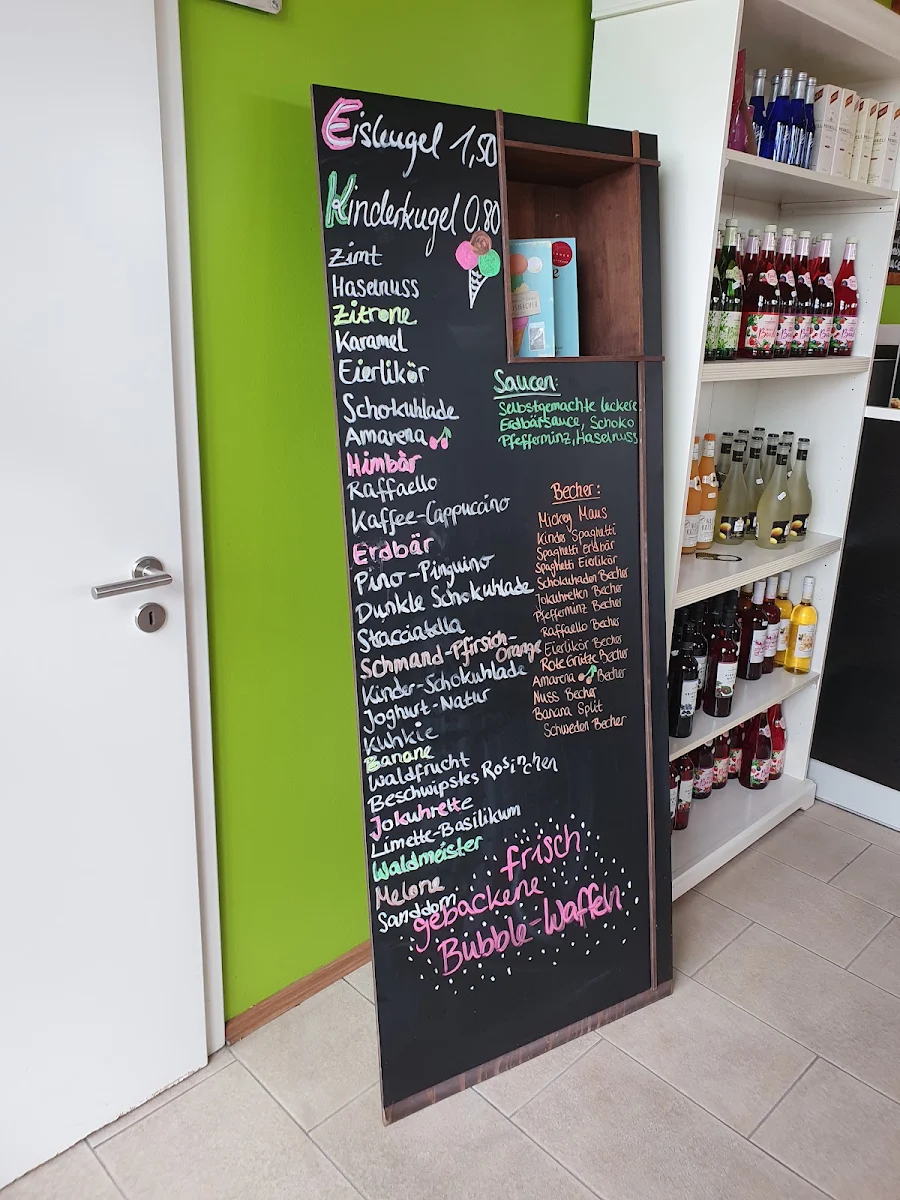 Eiskugel 1,50
Kinderkugel 0,80
Zimt
Haselnuss
Zitrone
Karamel
Eierlikör
Schokuhlade
Amarena
Himbär
Raffaello
Kaffee-Cappuccino
Erdbär
Pino-Pinguino
Dunkle Schokuhlade
Stacciatella
Schmand-Pfirsich-
Orange
Kinder-Schokuhlade
Joghurt-Natur
Kuhkie
Banane
Waldfrucht
Beschwipstes Rosinchen
Jokuhrette
Limette-Basilikum
Waldmeister
Melone
Sanddorn
Saucen:
Selbstgemachte leckere
Erdbärsauce, Schoko
Pfefferminz, Haselnuss
Becher:
Mickey Maus
Kinder Spaghetti
Spaghetti Erdbär
Spaghetti Eierlikör
Schokuhladen Becher
Jokuhretten Becher
Pfefferminz Becher
Raffaello Becher
Eierlikör Becher
Rote Grütze Becher
Amarena Becher
Nuss Becher
Banana Split
Schweden Becher
frisch
gebackene
Bubble-Waffeln